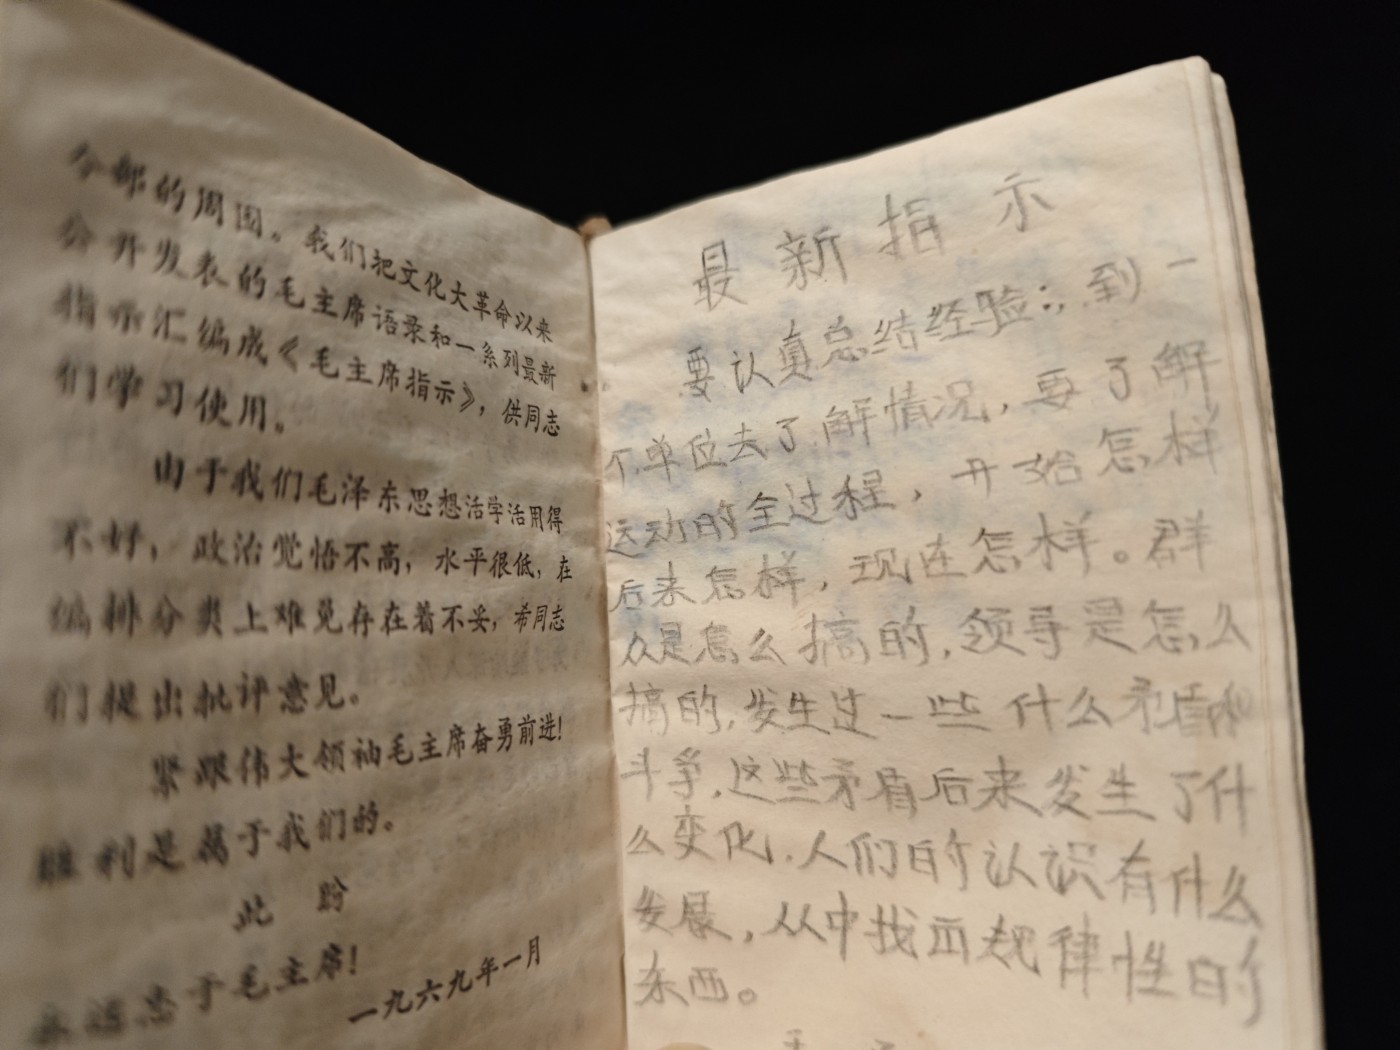 令部的周围。我们把文化大革命以来
公开发表的毛主席语录和一系列最新
指示汇编成《毛主席指示》，供同志
们学习使用。
由于我们毛泽东思想活学活用得
不好，政治觉悟不高，水平很低，在
编排分类上难免存在着不妥，希同志
们提出批评意见。
紧跟伟大领袖毛主席奋勇前进！
胜利是属于我们的。
此盼
永远忠于毛主席！
一九六九年一月
最新指示
要认真总结经验：，到一
个单位去了解情况，要了解
运动的全过程，开始怎样
后来怎样，现在怎样。群
众是怎么搞的，领导是怎么
搞的，发生过一些什么矛盾和
斗争，这些矛盾后来发生了什
么变化，人们的认识有什么
发展，从中找出规律性的
东西。